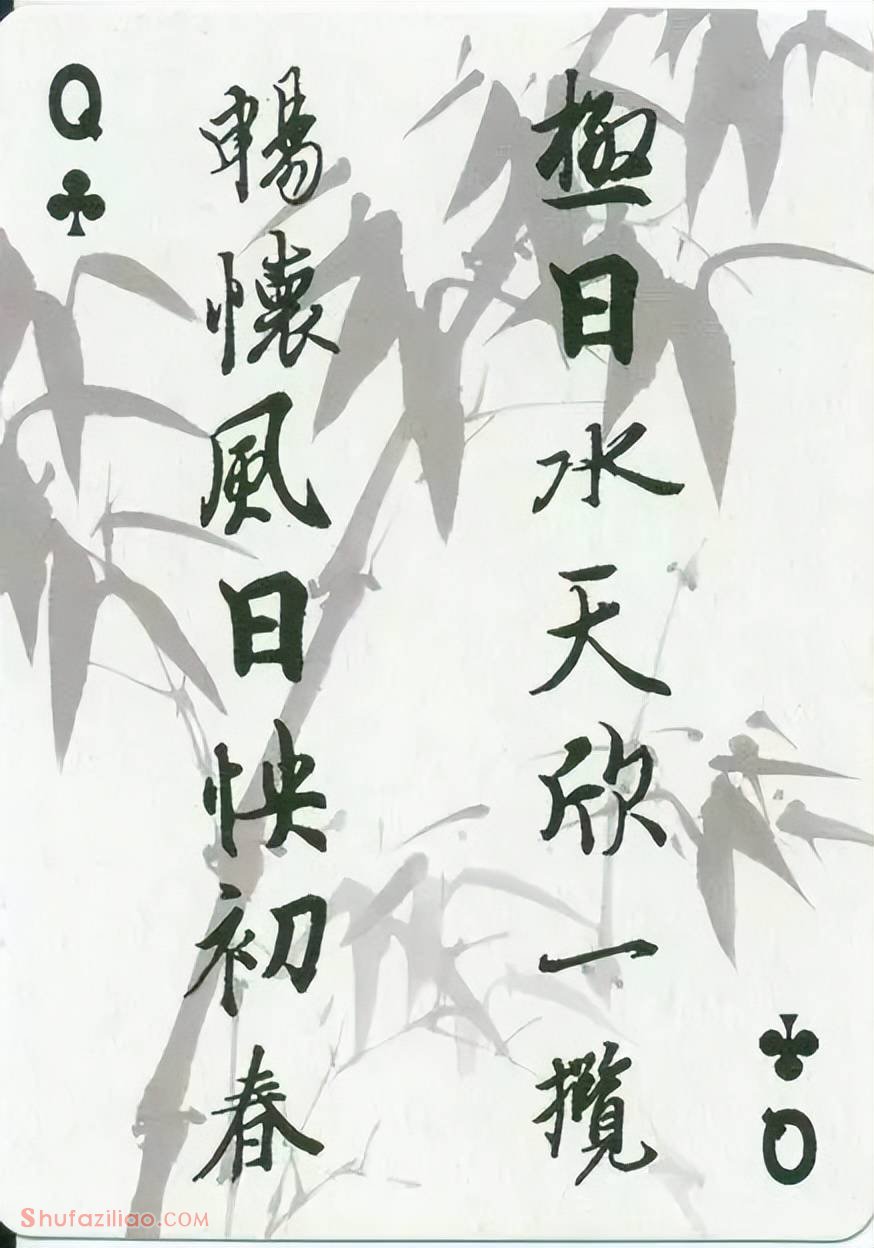 Q
極日水天欣一攬
暢懷風日快初春
Q
Shufaziliao.COM